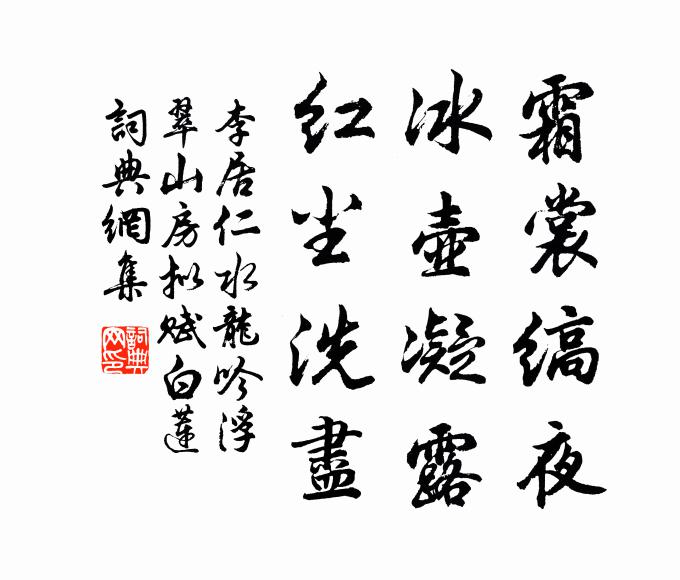 霜裳縞夜
冰壺凝露
红尘洗盡
李居仁水龍吟浮
翠山房拟赋白蓮
詞典網集
詞典
网印